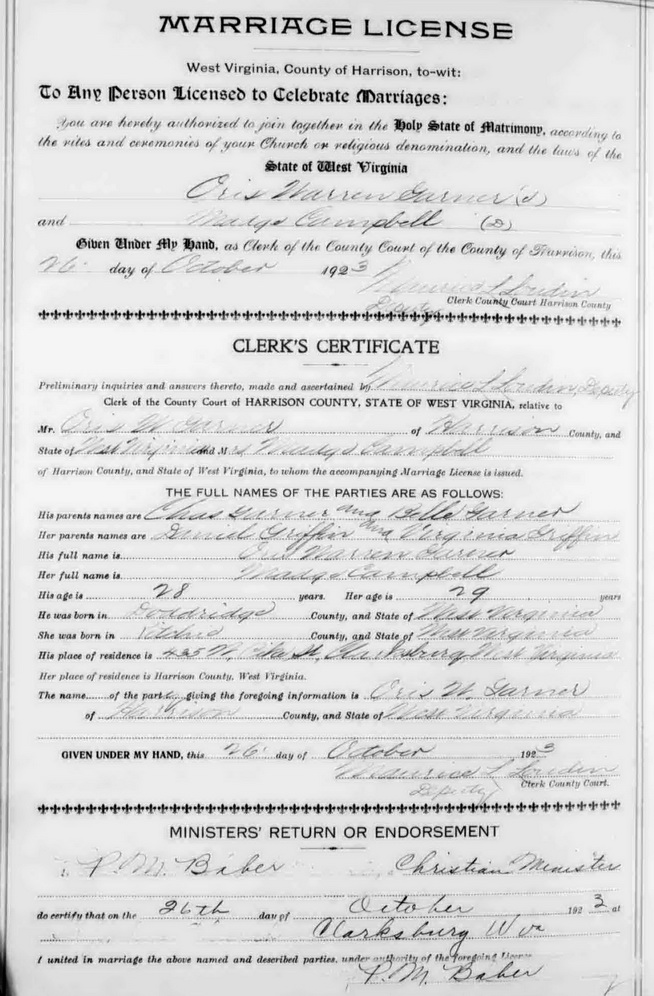 MARRIAGE LICENSE
West Virginia, County of Harrison, to-wit:
To Any Person Licensed to Celebrate Marriages:
You are hereby authorized to join together in the Holy State of Matrimony, according to
the rites and ceremonies of your Church or religious denomination, and the laws of the
State of West Virginia
Oris Warren Garner (S)
and Madge Campbell (D)
Given Under My Hand, as Clerk of the County Court of the County of Harrison, this
26 day of October 1923
Maurice L Loudin
Deputy Clerk County Court Harrison County
CLERK'S CERTIFICATE
Preliminary inquiries and answers thereto, made and ascertained by Maurice L Loudin, Deputy
Clerk of the County Court of HARRISON COUNTY, STATE OF WEST VIRGINIA, relative to
Mr. Oris W Garner of Harrison County, and
State of West Virginia and Mrs Madge Campbell
of Harrison County, and State of West Virginia, to whom the accompanying Marriage License is issued.
THE FULL NAMES OF THE PARTIES ARE AS FOLLOWS:
His parents names are Chas Garner and Belle Garner
Her parents names are Daniel Griffin and Virginia Griffin
His full name is Oris Warren Garner
Her full name is Madge Campbell
His age is 28 years. Her age is 29 years
He was born in Doddridge County, and State of West Virginia
She was born in Ritchie County, and State of West Virginia
His place of residence is 435 W. Pike St, Clarksburg West Virginia
Her place of residence is Harrison County, West Virginia.
The name of the part giving the foregoing information is Oris W. Garner
of Harrison County, and State of West Virginia
GIVEN UNDER MY HAND, this 26 day of October 1923
Maurice L Loudin
Deputy Clerk County Court.
MINISTERS' RETURN OR ENDORSEMENT
P. M. Baber Christian Minister
do certify that on the 26th day of October 1923 at
Clarksburg W va
I united in marriage the above named and described parties, under authority of the foregoing License
P. M. Baber